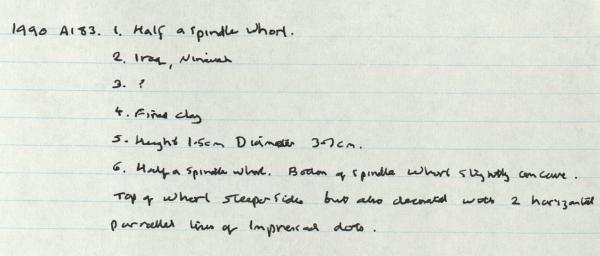 1990 A183. 1. Half a spindle whorl.
2. Iraq, Nineveh
3. ?
4. Fired clay
5. Height 1.5cm Diameter 3.7cm.
6. Half a spindle whorl. Bottom of spindle whorl slightly concave.
Top of whorl steeper sides but also decorated with 2 horizontal
parralled lines of impressed dots.